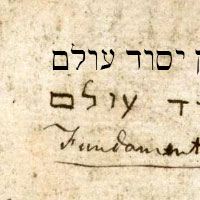 ן יסוד עולם
ד עולם
Fundament